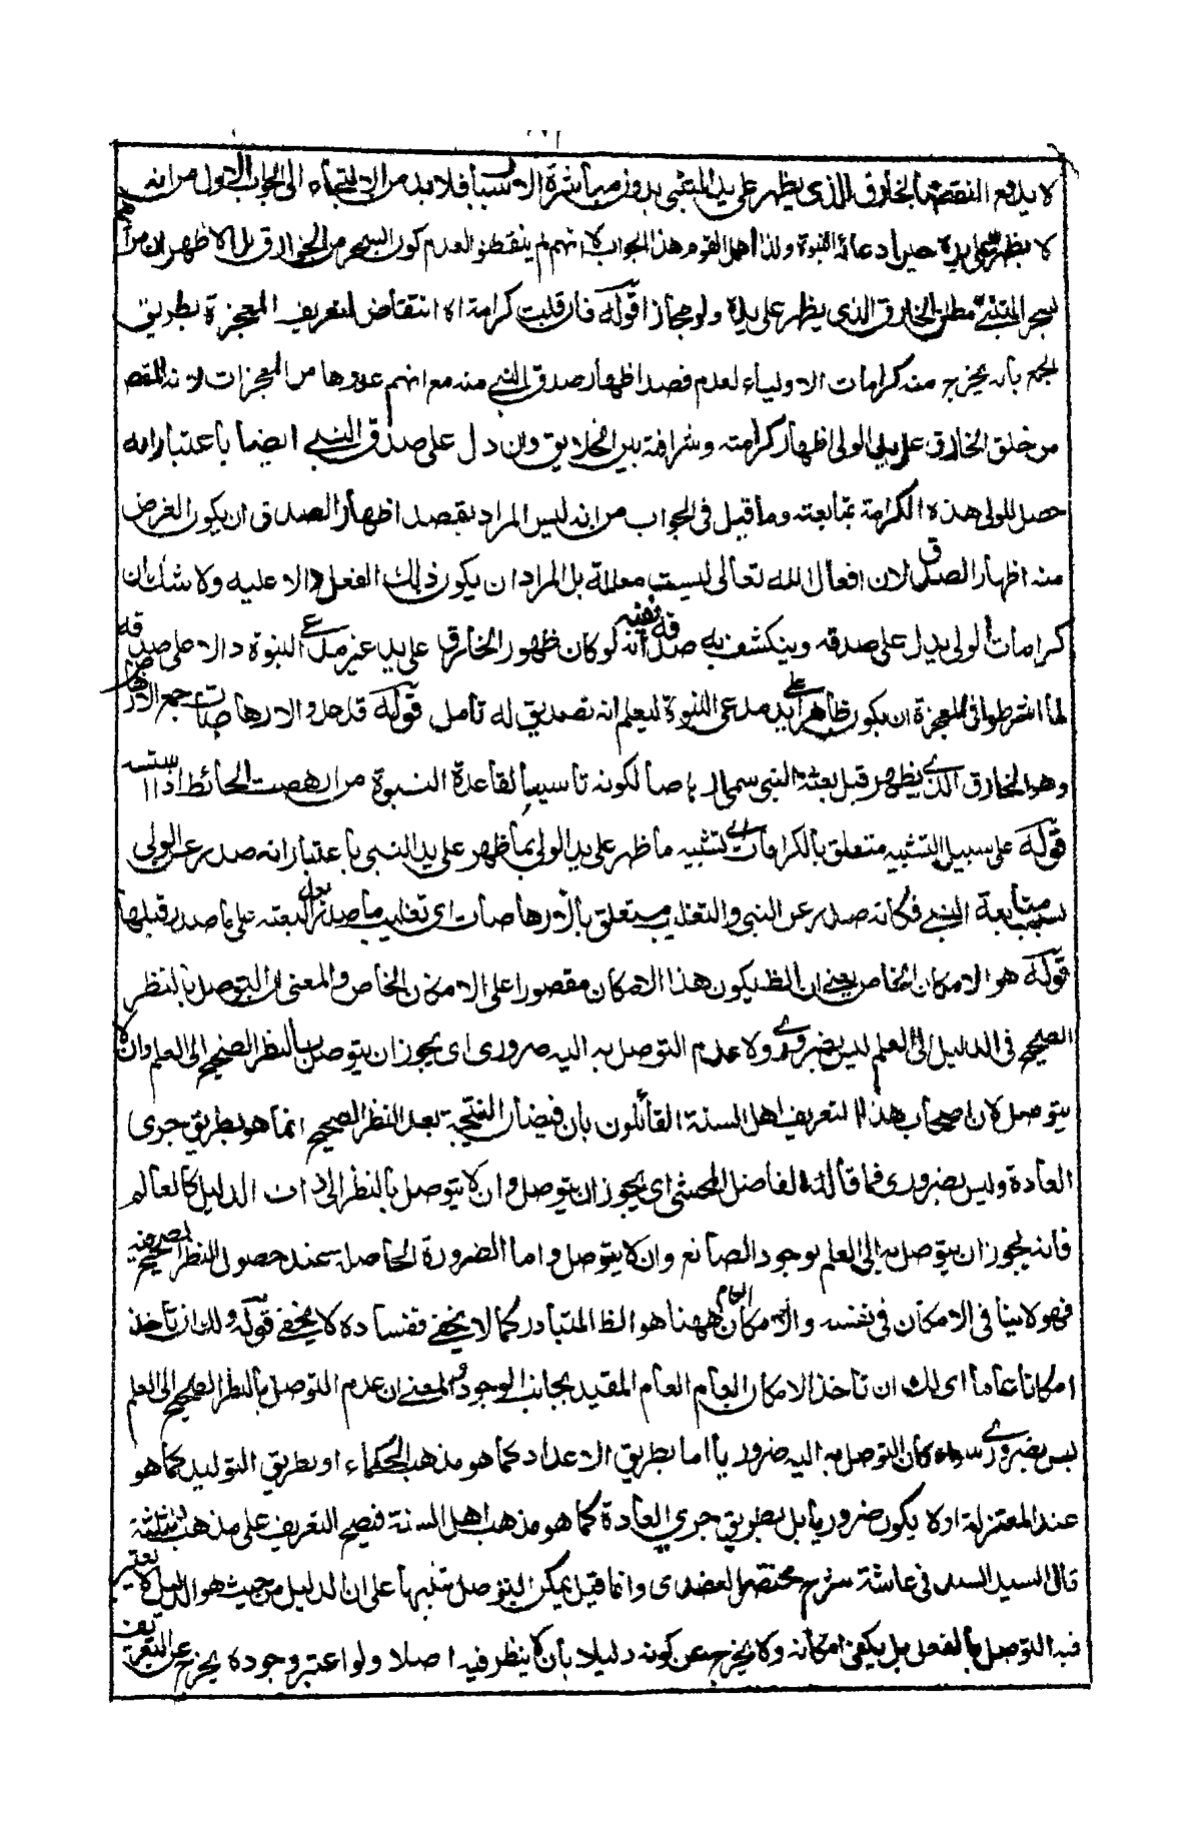 لا يدفع النقض بالخارق الذى يظهر على يد المتنبى بدون مباشرة الاسباب فلا بد من الالتجاء الى الجواب الاول من انه
لا يظهر على يده حين ادعائه النبوة ولذا اهمل القوم هذا الجواب لا انهم لم يتفطنوا لعدم كون السحر من الخوارق بل الاظهر ان مرادهم
بسحر المتنبى مطلق الخارق الذى يظهر على يده ولو مجازا قوله فان قلت كرامة اه انتقاض لتعريف المعجزة بطريق
الجمع بانه يخرج منه كرامات الاولياء لعدم قصد اظهار صدق النبى منه مع انهم عدوها من المعجزات لانه المقصد
من خلق الخارق على يد الولى اظهار كرامته وشرافته بين الخلايق وان دل على صدق النبى ايضا باعتبار انه
حصل للولى هذه الكرامة بمتابعته وما قيل فى الجواب من انه ليس المراد بقصد اظهار الصدق ان يكون الغرض
منه اظهار الصدق لان افعال الله تعالى ليست معللة بل المراد ان يكون ذلك الفعل دالا عليه ولا شك ان
كرامات الولى يدل على صدقه وينكشف به صدقه ففيه انه لو كان ظهور الخارق على يد غير مدعى النبوة دالا على صدقه
لما اشرطوا فى المعجزة ان يكون ظاهرا على يد مدعى النبوة ليعلم انه تصديق له تأمل قوله قد جد والارهاصات جمع الارهاص
وهو الخارق الذى يظهر قبل بعثة النبى سمى ارهاصا لكونه تاسيسا لقاعدة النبوة من ارهصت الحائط اذا اسسته
قوله على سبيل التشبيه متعلق بالكرامات اى لتشبيه ما ظهر على يد الولى بما ظهر على يد النبى باعتبار انه صدر عن الولى
بسبب متابعة النبى فكانه صدر عن النبى والتغليب متعلق بالارهاصات اى تغليب ما صدر بعد البعثة على ما صدر قبلها
قوله هو الامكان الخاص يعنى ان الظ يكون هذا الامكان مقصورا على الامكان الخاص والمعنى ان التوصل بالنظر
الصحيح فى الدليل الى العلم ليس بضرورى ولا عدم التوصل به اليه ضرورى اى يجوز ان يتوصل بالنظر الصحيح الى العلم وان لا
يتوصل لان اصحاب هذا التعريف اهل السنة القائلون بان فيضان النتيجة بعد النظر الصحيح انما هو بطريق جرى
العادة وليس بضرورى فما قال الفاضل المحشى اى يجوز ان يتوصل وان لا يتوصل بالنظر الى ذات الدليل كالعالم
فانه يجوز ان يتوصل به الى العلم بوجود الصانع وان لا يتوصل واما الضرورة الحاصلة عند حصول النظر الصحيح
فهو لا ينافى الامكان فى نفسه والامكان العام ههنا هو الظ المتبادر كما لا يخفى ففساده لا يخفى قوله ولك ان تأخذ
امكانا عاما اى لك ان تأخذ الامكان العام العام المقيد بجانب الوجود والمعنى ان عدم التوصل بالنظر الصحيح الى العلم
ليس بضرورى سواء كان التوصل به اليه ضروريا اما بطريق الاعداد كما هو مذهب الحكماء او بطريق التوليد كما هو
عند المعتزلة او لا يكون ضروريا بل بطريق جرى العادة كما هو مذهب اهل السنة فيصح التعريف على مذهب الثلثة
قال السيد السند فى حاشية شرح مختصر العضدى وانما قيل يمكن التوصل تنبيها على ان الدليل من حيث هو الدليل لا يعتبر
فيه التوصل بالفعل بل يكفى امكانه ولا يخرج عن كونه دليلا بأن لا ينظر فيه اصلا ولو اعتبر وجوده يخرج عن التعريف